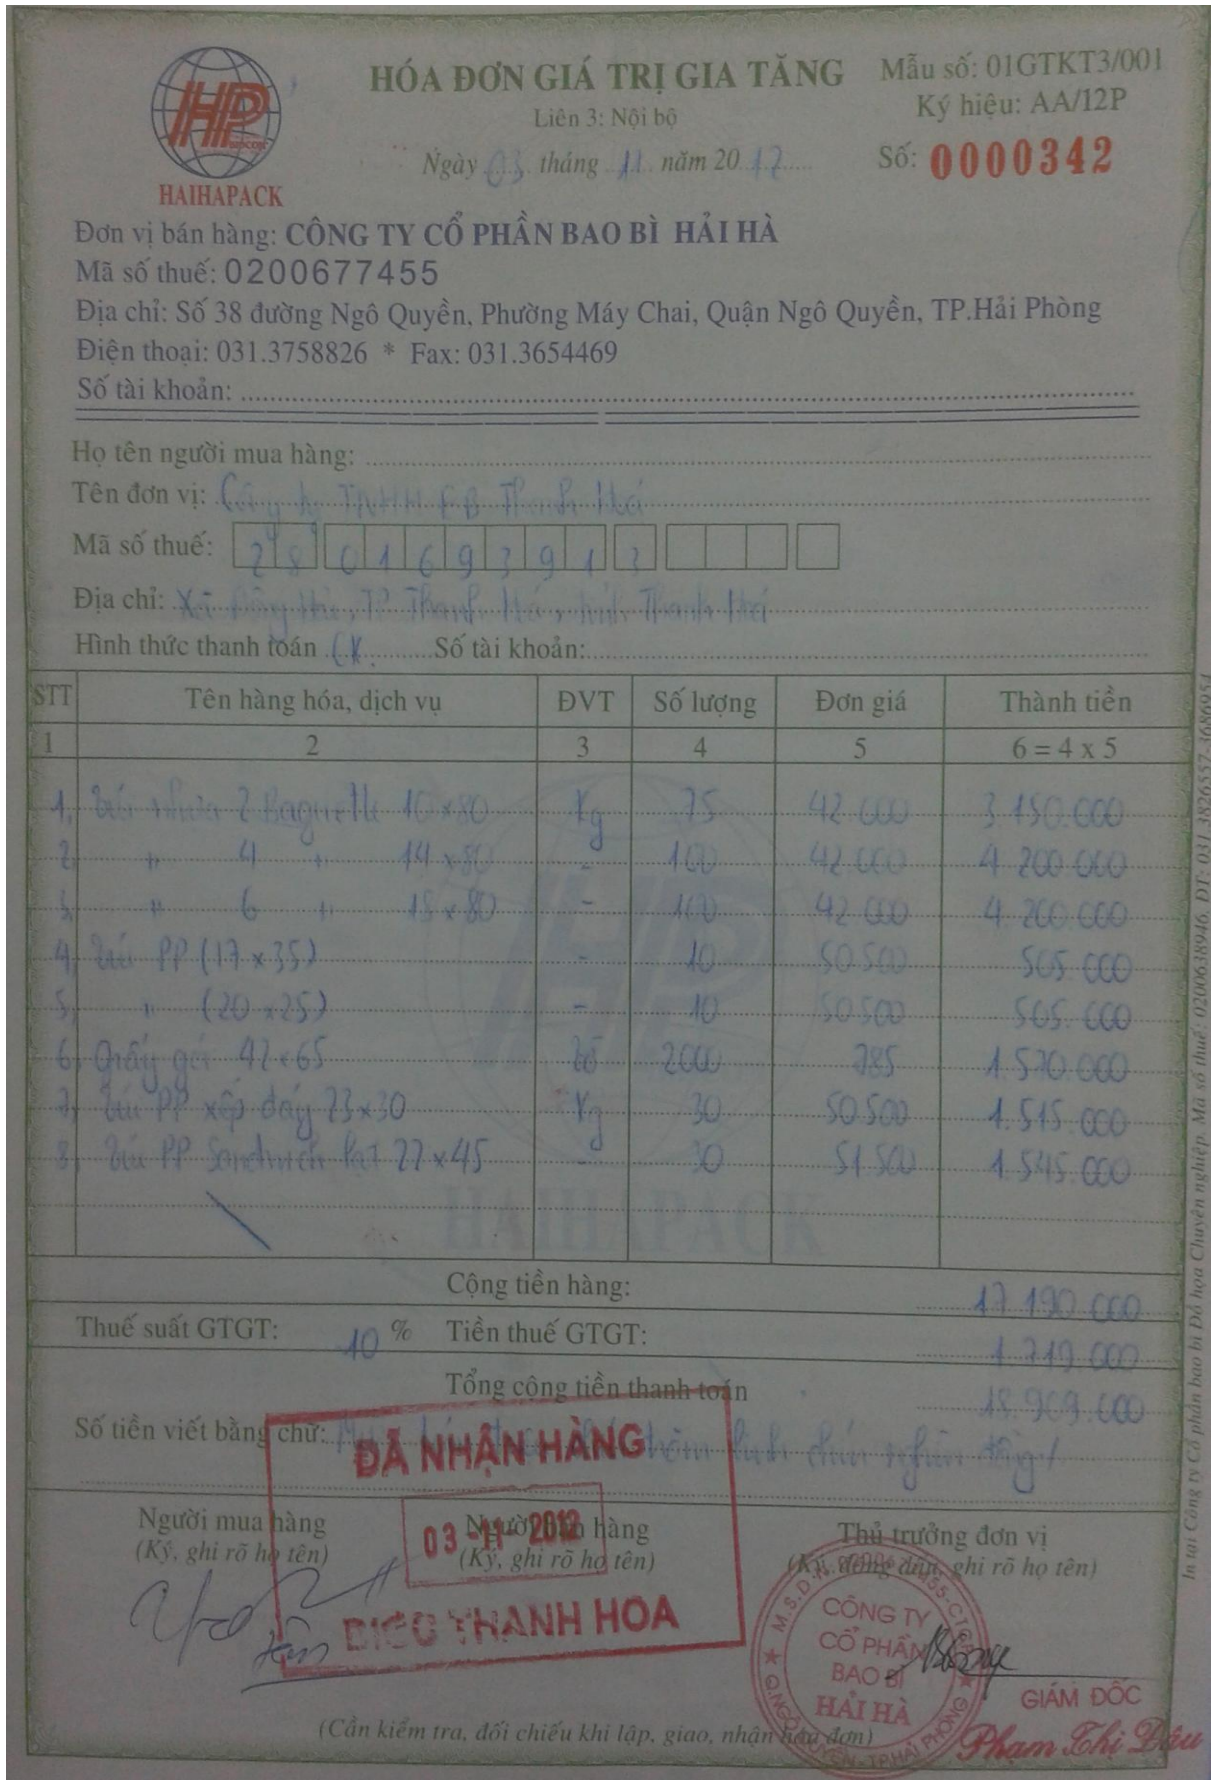 HÓA ĐƠN GIÁ TRỊ GIA TĂNG
Mẫu số: 01GTKT3/001
Liên 3: Nội bộ
Ký hiệu: AA/12P
Ngày 03 tháng 11 năm 2012
Số: 0000342
HP
HAIHAPACK
Đơn vị bán hàng: CÔNG TY CỔ PHẦN BAO BÌ HẢI HÀ
Mã số thuế: 0200677455
Địa chỉ: Số 38 đường Ngô Quyền, Phường Máy Chai, Quận Ngô Quyền, TP.Hải Phòng
Điện thoại: 031.3758826 * Fax: 031.3654469
Số tài khoản:
Họ tên người mua hàng:
Tên đơn vị: Công ty TNHH EB Thanh Hoá
Mã số thuế: 2801693913
Địa chỉ: Xã Đông Hải, TP Thanh Hoá, tỉnh Thanh Hoá
Hình thức thanh toán CK. Số tài khoản:
STT Tên hàng hóa, dịch vụ ĐVT Số lượng Đơn giá Thành tiền
1 2 3 4 5 6 = 4 x 5
1, Túi nhựa 2 Baguette 10x80 Kg 75 42.000 3.150.000
2, " 4 " 14x80 - 100 42.000 4.200.000
3, " 6 " 18x80 - 100 42.000 4.200.000
4, Túi PP (17x35) - 10 50.500 505.000
5, " (20x25) - 10 50.500 505.000
6, Giấy gói 42x65 tờ 2000 785 1.570.000
7, Túi PP xếp đáy 23x30 Kg 30 50.500 1.515.000
8, Túi PP Sandwich Lat 27x45 - 30 51.500 1.545.000
HAIHAPACK
Cộng tiền hàng: 17.190.000
Thuế suất GTGT: 10 % Tiền thuế GTGT: 1.719.000
Tổng cộng tiền thanh toán 18.909.000
Số tiền viết bằng chữ: trăm linh chín nghìn đồng/
ĐÃ NHẬN HÀNG
03-11-2012
BIGC THANH HOA
Người mua hàng
(Ký, ghi rõ họ tên)
Người bán hàng
(Ký, ghi rõ họ tên)
Thủ trưởng đơn vị
(Ký, đóng dấu, ghi rõ họ tên)
CÔNG TY
CỔ PHẦN
BAO BÌ
HẢI HÀ
Q.NGÔ QUYỀN - TP.HẢI PHÒNG
GIÁM ĐỐC
Phạm Thị Dậu
(Cần kiểm tra, đối chiếu khi lập, giao, nhận hóa đơn)
In tại Công ty Cổ phần bao bì Đồ họa Chuyên nghiệp. Mã số thuế: 0200638946, ĐT: 031.3826557-3686954